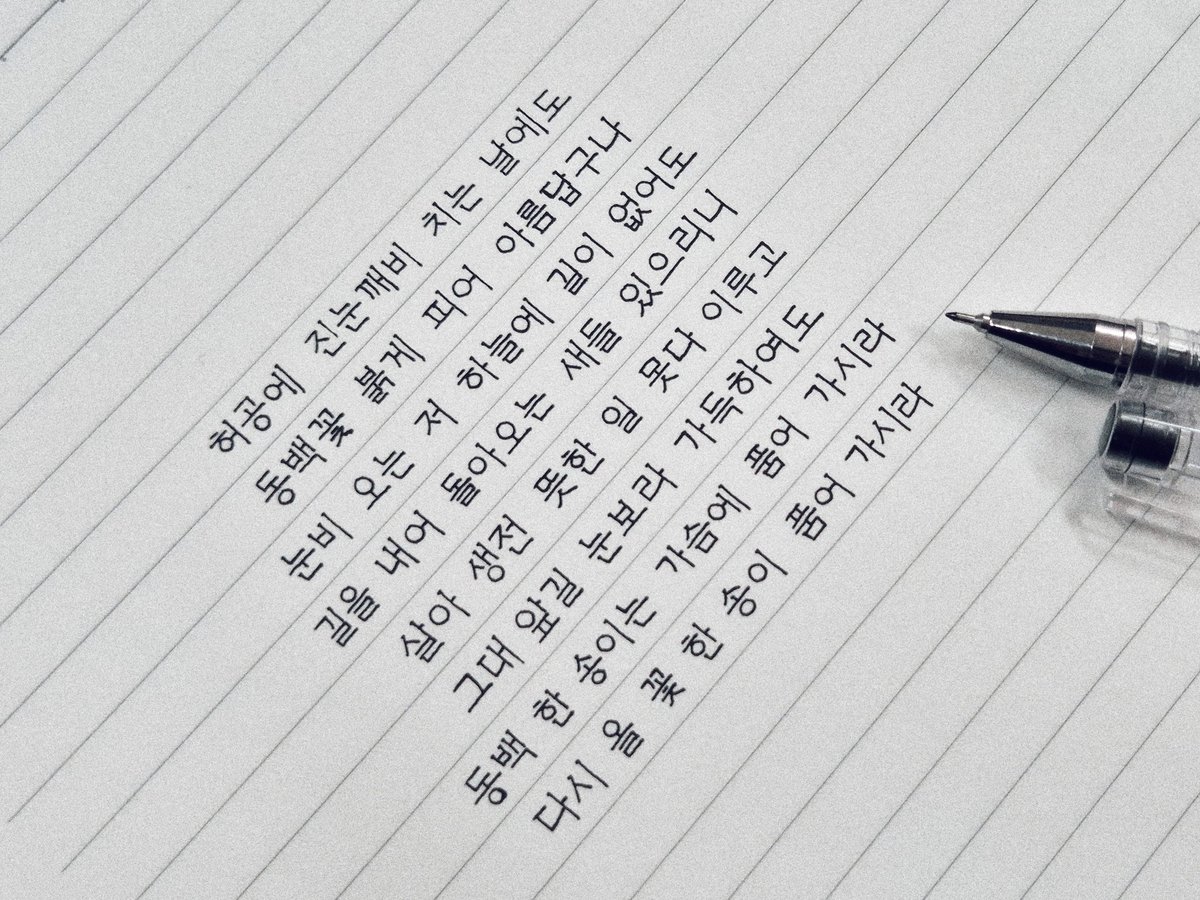 허공에 진눈깨비 치는 날에도
동백꽃 붉게 피어 아름답구나
눈비 오는 저 하늘에 길이 없어도
길을 내어 돌아오는 새들 있으리니
살아 생전 뜻한 일 못다 이루고
그대 앞길 눈보라 가득하여도
동백 한 송이는 가슴에 품어 가시라
다시 올 꽃 한 송이 품어 가시라